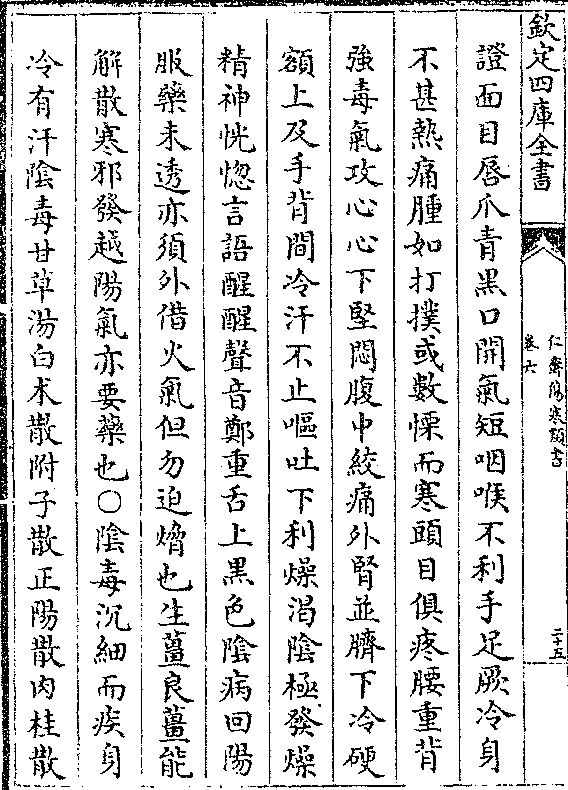 欽定四庫全書
仁齋傷寒類書
卷六
二十五
證面目唇爪青黒口開氣短咽喉不利手足厥冷身
不甚熱痛腫如打撲或數慄而寒頭目俱疼腰重背
強毒氣攻心心下堅悶腹中絞痛外腎並臍下冷硬
額上及手背間冷汗不止嘔吐下利燥渴陰極發燥
精神恍惚言語醒醒聲音鄭重舌上黒色陰病回陽
服藥未透亦須外借火氣但勿迫㷟也生薑良薑能
解散寒邪發越陽氣亦要藥也○陰毒沉細而疾身
冷有汗陰毒甘草湯白朮散附子散正陽散肉桂散